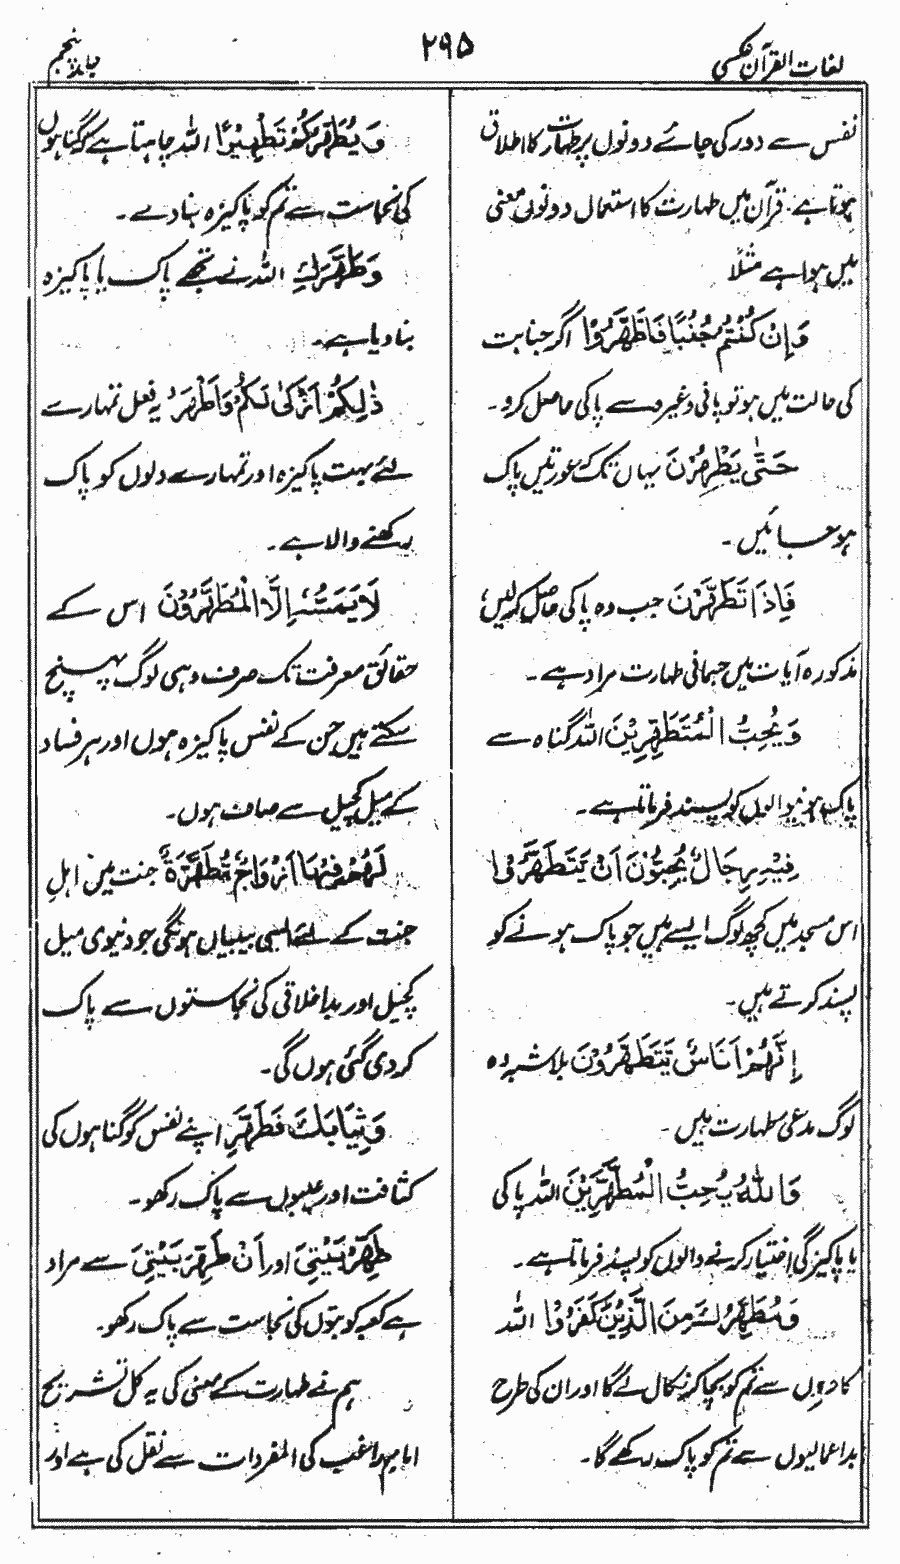 لغات القرآن عکسی
۲۹۵
جلد پنجم
نفس سے دور کی جائے دونوں پر طہارت کا اطلاق
ہوتا ہے۔ قرآن میں طہارت کا استعمال دونوں معنی
میں ہوا ہے مثلاً
وَاِنْ كُنْتُمْ جُنُبًا فَاطَّهَّرُوْا اگر جنابت
کی حالت میں ہو تو پانی وغیرہ سے پاکی حاصل کرو۔
حَتّٰى يَطْهُرْنَ یہاں تک کہ عورتیں پاک
ہوجائیں۔
فَاِذَا تَطَهَّرْنَ جب وہ پاکی حاصل کرلیں؛
مذکورہ آیات میں جسمانی طہارت مراد ہے۔
وَيُحِبُّ الْمُتَطَهِّرِيْنَ اللہ گناہ سے
پاک ہونیوالوں کو پسند فرماتا ہے۔
فِيْهِ رِجَالٌ يُّحِبُّوْنَ اَنْ يَّتَطَهَّرُوْا
اس مسجد میں کچھ لوگ ایسے ہیں جو پاک ہونے کو
پسند کرتے ہیں۔
اِنَّهُمْ اُنَاسٌ يَّتَطَهَّرُوْنَ بلاشبہ وہ
لوگ مدعی طہارت ہیں۔
وَاللّٰهُ يُحِبُّ الْمُطَّهِّرِيْنَ اللہ پاکی
یا پاکیزگی اختیار کرنے والوں کو پسند فرماتا ہے۔
وَمُطَهِّرُكَ مِنَ الَّذِيْنَ كَفَرُوْا اللہ
کافروں سے تم کو بچا کر نکال لے گا اور ان کی طرح
بداعمالیوں سے تم کو پاک رکھے گا۔
وَيُطَهِّرَكُمْ تَطْهِيْرًا اللہ چاہتا ہے کہ گناہوں
کی نجاست سے تم کو پاکیزہ بنادے۔
وَطَهَّرَكِ اللہ نے تجھے پاک یا پاکیزہ
بنادیا ہے۔
ذٰلِكُمْ اَزْكٰى لَكُمْ وَاَطْهَرُ یہ فعل تمہارے
لئے بہت پاکیزہ اور تمہارے دلوں کو پاک
رکھنے والا ہے۔
لَا يَمَسُّهٗ اِلَّا الْمُطَهَّرُوْنَ اس کے
حقائق معرفت تک صرف وہی لوگ پہنچ
سکتے ہیں جن کے نفس پاکیزہ ہوں اور ہر فساد
کے میل کچیل سے صاف ہوں۔
لَهُمْ فِيْهَا اَزْوَاجٌ مُّطَهَّرَةٌ جنت میں اہلِ
جنت کے لئے ایسی بیبیاں ہونگی جو دنیوی میل
کچیل اور بداخلاقی کی نجاستوں سے پاک
کردی گئی ہوں گی۔
وَثِيَابَكَ فَطَهِّرْ اپنے نفس کو گناہوں کی
کثافت اور عیبوں سے پاک رکھو۔
طَهِّرْ بَيْتِيَ اور اَنْ طَهِّرَ بَيْتِيَ سے مراد
ہے کعبہ کو بتوں کی نجاست سے پاک رکھو۔
ہم نے طہارت کے معنی کی یہ کل تشریح
امام راغب کی المفردات سے نقل کی ہے اور